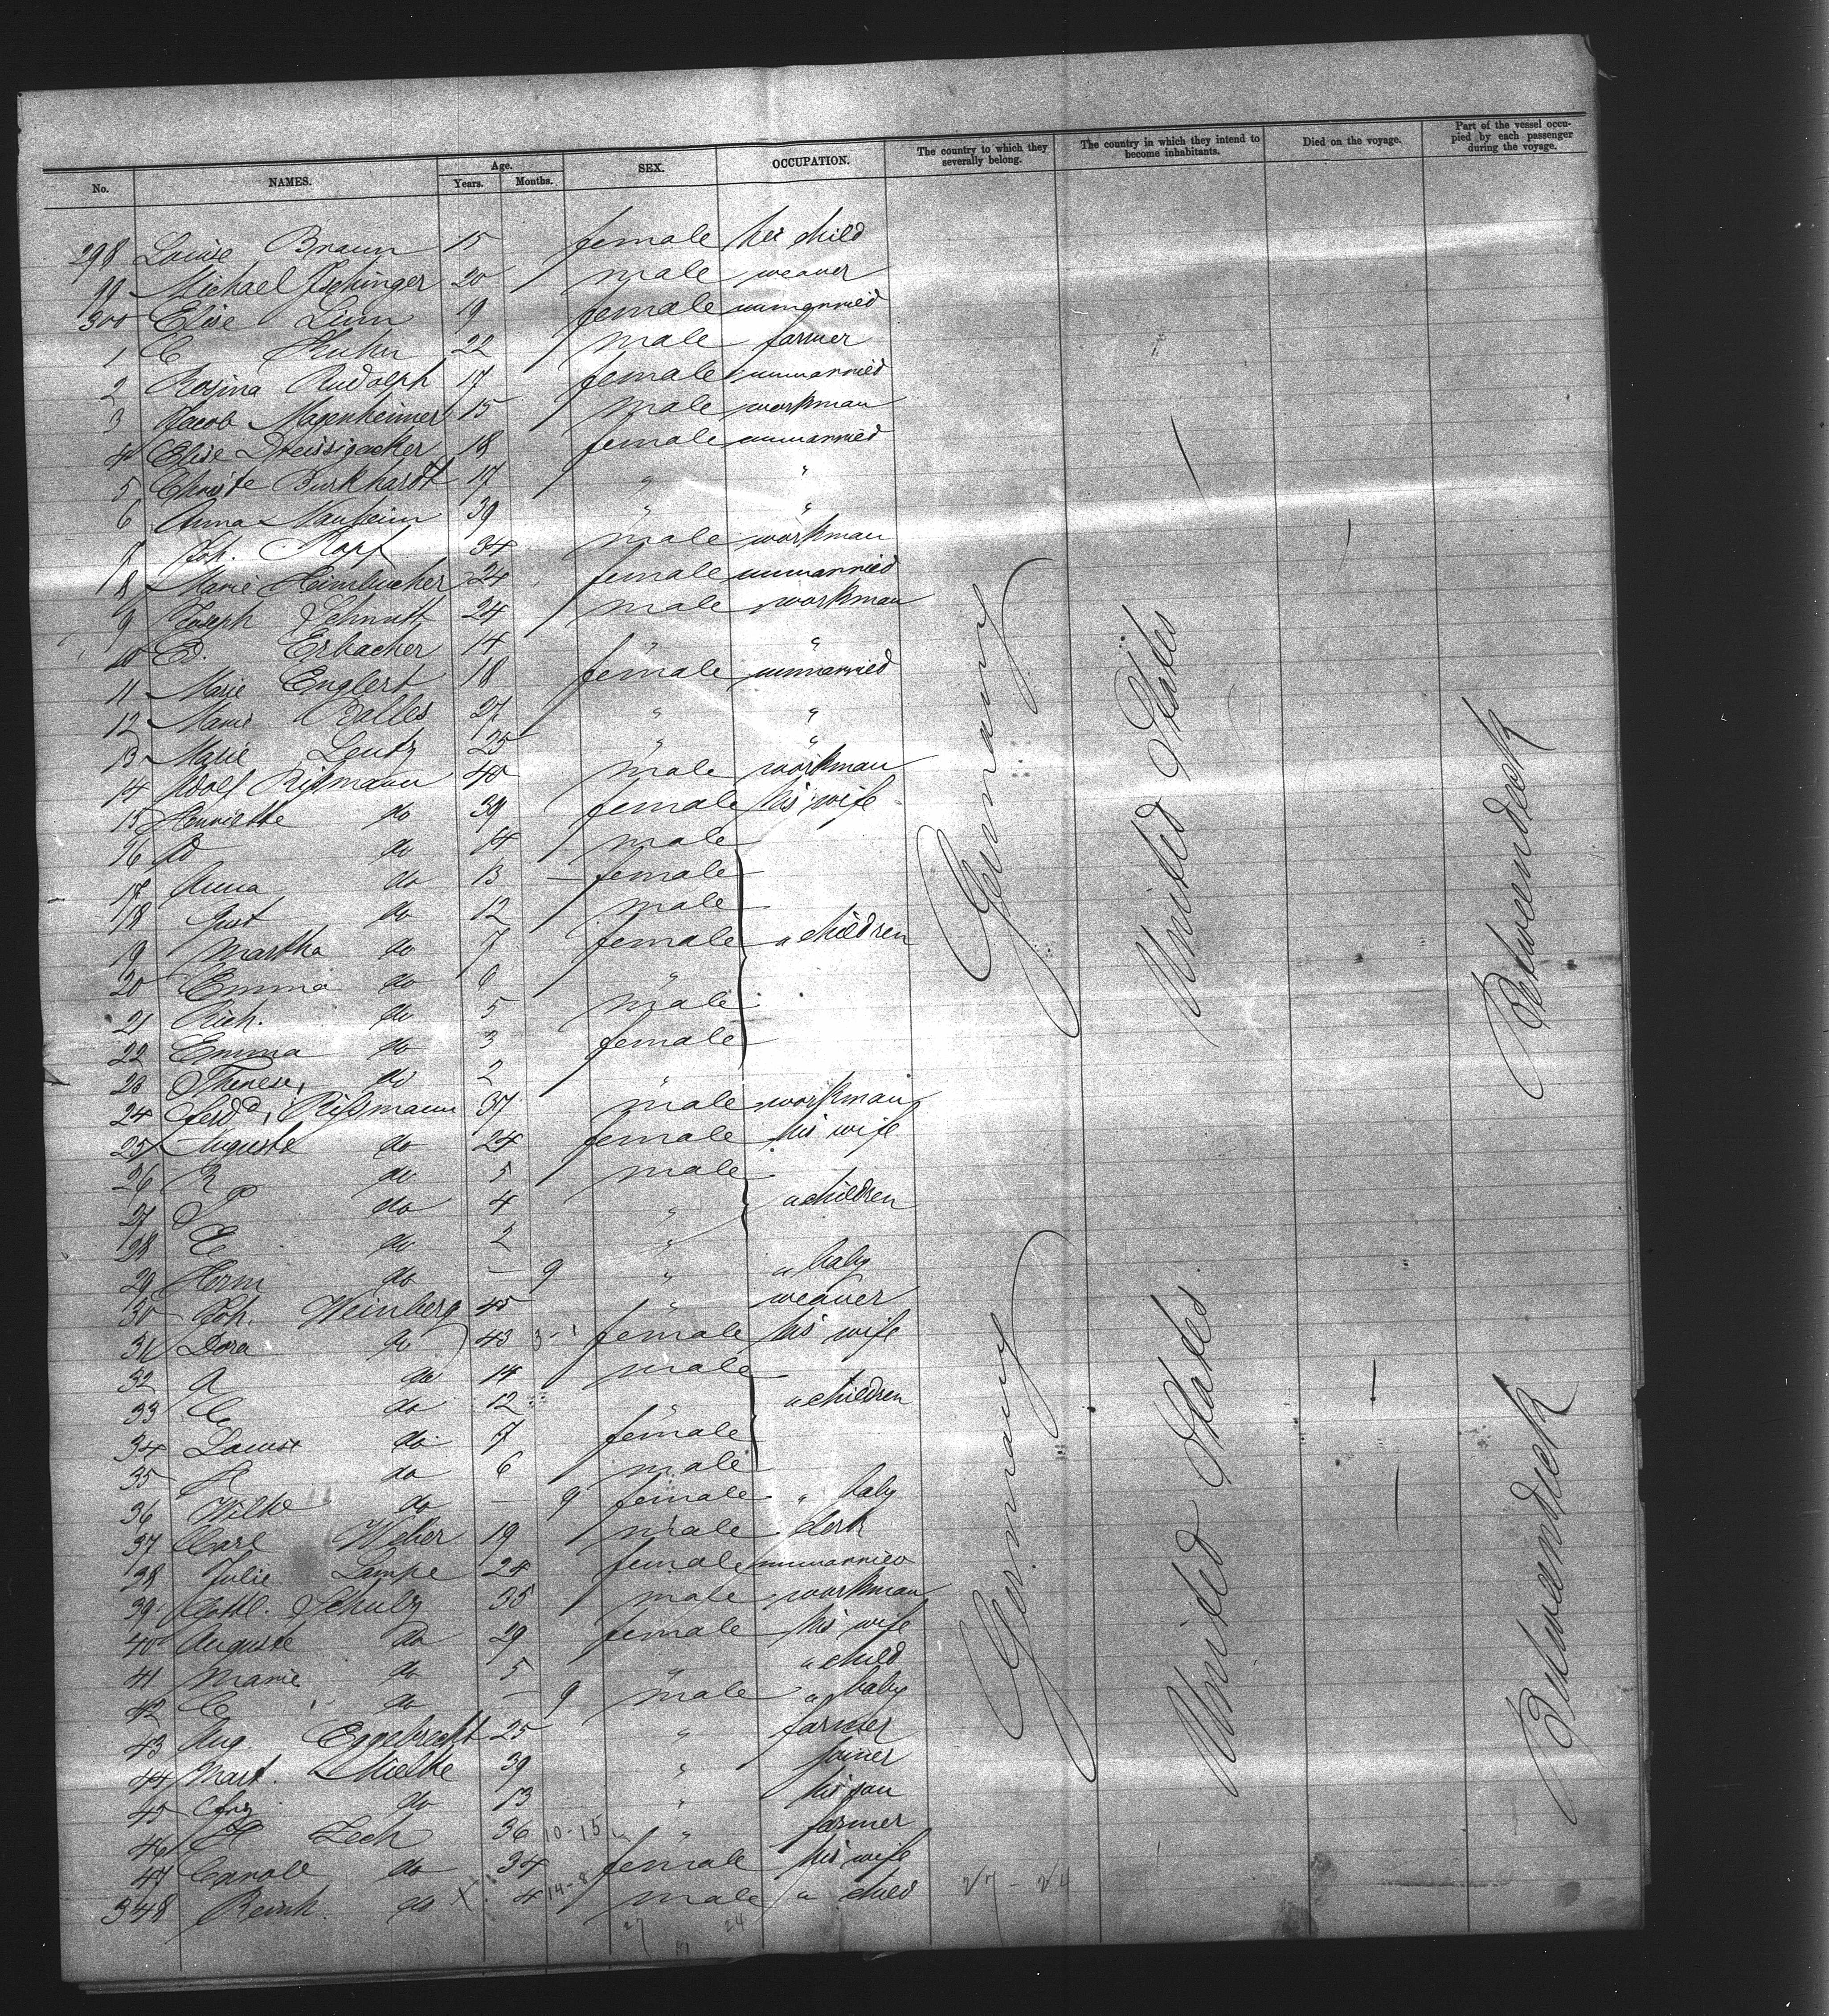 No. NAMES. Age. Years. Months. SEX. OCCUPATION. The country to which they severally belong. The country in which they intend to become inhabitants. Died on the voyage. Part of the vessel occupied by each passenger during the voyage.
298 Louise Braun 15 female her child
99 Michael 20 male weaver
300 Elise Linn 19 female unmarried
1 C Kuhn 22 male farmer
2 Rosina Rudolph 17 female unmarried
3 Jacob Magenheimer 15 male workman
4 Elise Dreissigacker 18 female unmarried
5 Christe Burkhardt 17 " "
6 Anna Nauheim 39 " "
7 Joh. Rapp 34 male workman
8 Marie Heimbucher 24 female unmarried
9 Joseph Schmitt 24 male workman
10 Ed. Erbacher 14 " "
11 Marie Englert 18 female unmarried
12 Marie 27 " "
13 Marie Lentz 25 " "
14 Adolf Rißmann 40 male workman
15 Henriette do 39 female his wife
16 Ad do 14 male
17 Anna do 13 female
18 Gust do 12 male
19 Martha do 7 female " children
20 Emma do 6 "
21 Rich. do 5 male
22 Emma do 3 female
23 Therese do 2 "
24 Ferdd. Rißmann 37 male workman
25 Auguste do 24 female his wife
26 R do 5 male
27 do 4 " " children
28 E do 2 "
29 Herm do — 9 " " baby
30 Joh. Weinberg 45 " weaver
31 Dora do 43 female his wife
32 A do 14 male
33 C do 12 " " children
34 Louise do 7 female
35 do 6 male
36 Wilhe do — 9 female " baby
37 Carl Weber 19 male clerk
38 Julie Lampe 24 female unmarried
39 Gottl. Schulz 35 male workman
40 Auguste do 29 female his wife
41 Marie do 5 " " child
42 C do — 9 male " baby
43 Aug Eggebrecht 25 " farmer
44 Mart. Mielke 39 " joiner
45 do 13 " his son
46 H Zech 36 10-15 " farmer
47 Caroll do 34 female his wife
348 Reinh. do X 4 14-8 male " child
Germany United States Betweendeck
Germany United States Betweendeck
27 24